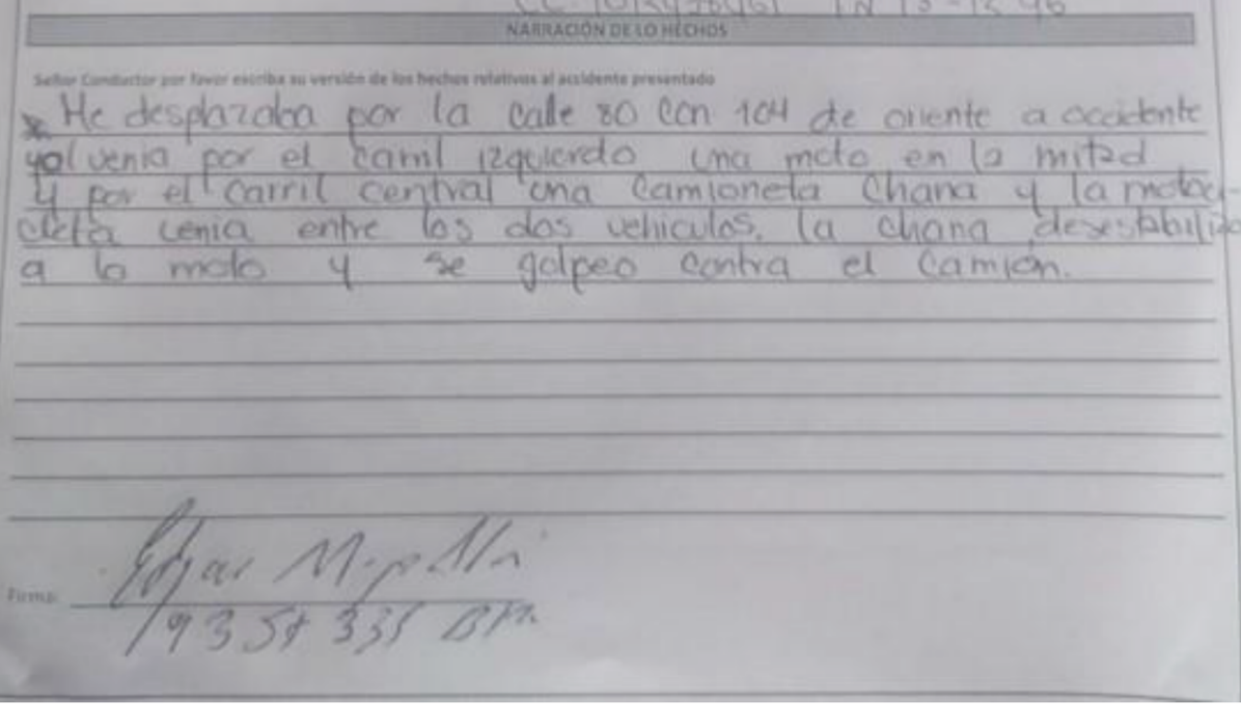 NARRACIÓN DE LO HECHOS
Señor Conductor por favor escriba su versión de los hechos relativos al accidente presentado
Me desplazaba por la calle 80 con 104 de oriente a occidente
venia por el carril izquierdo una moto en la mitad
y por el carril central una Camioneta Chana y la motoci-
cleta venia entre los dos vehiculos. la chana desestabilizo
a la moto y se golpeo contra el Camión.
Edgar
Firma: